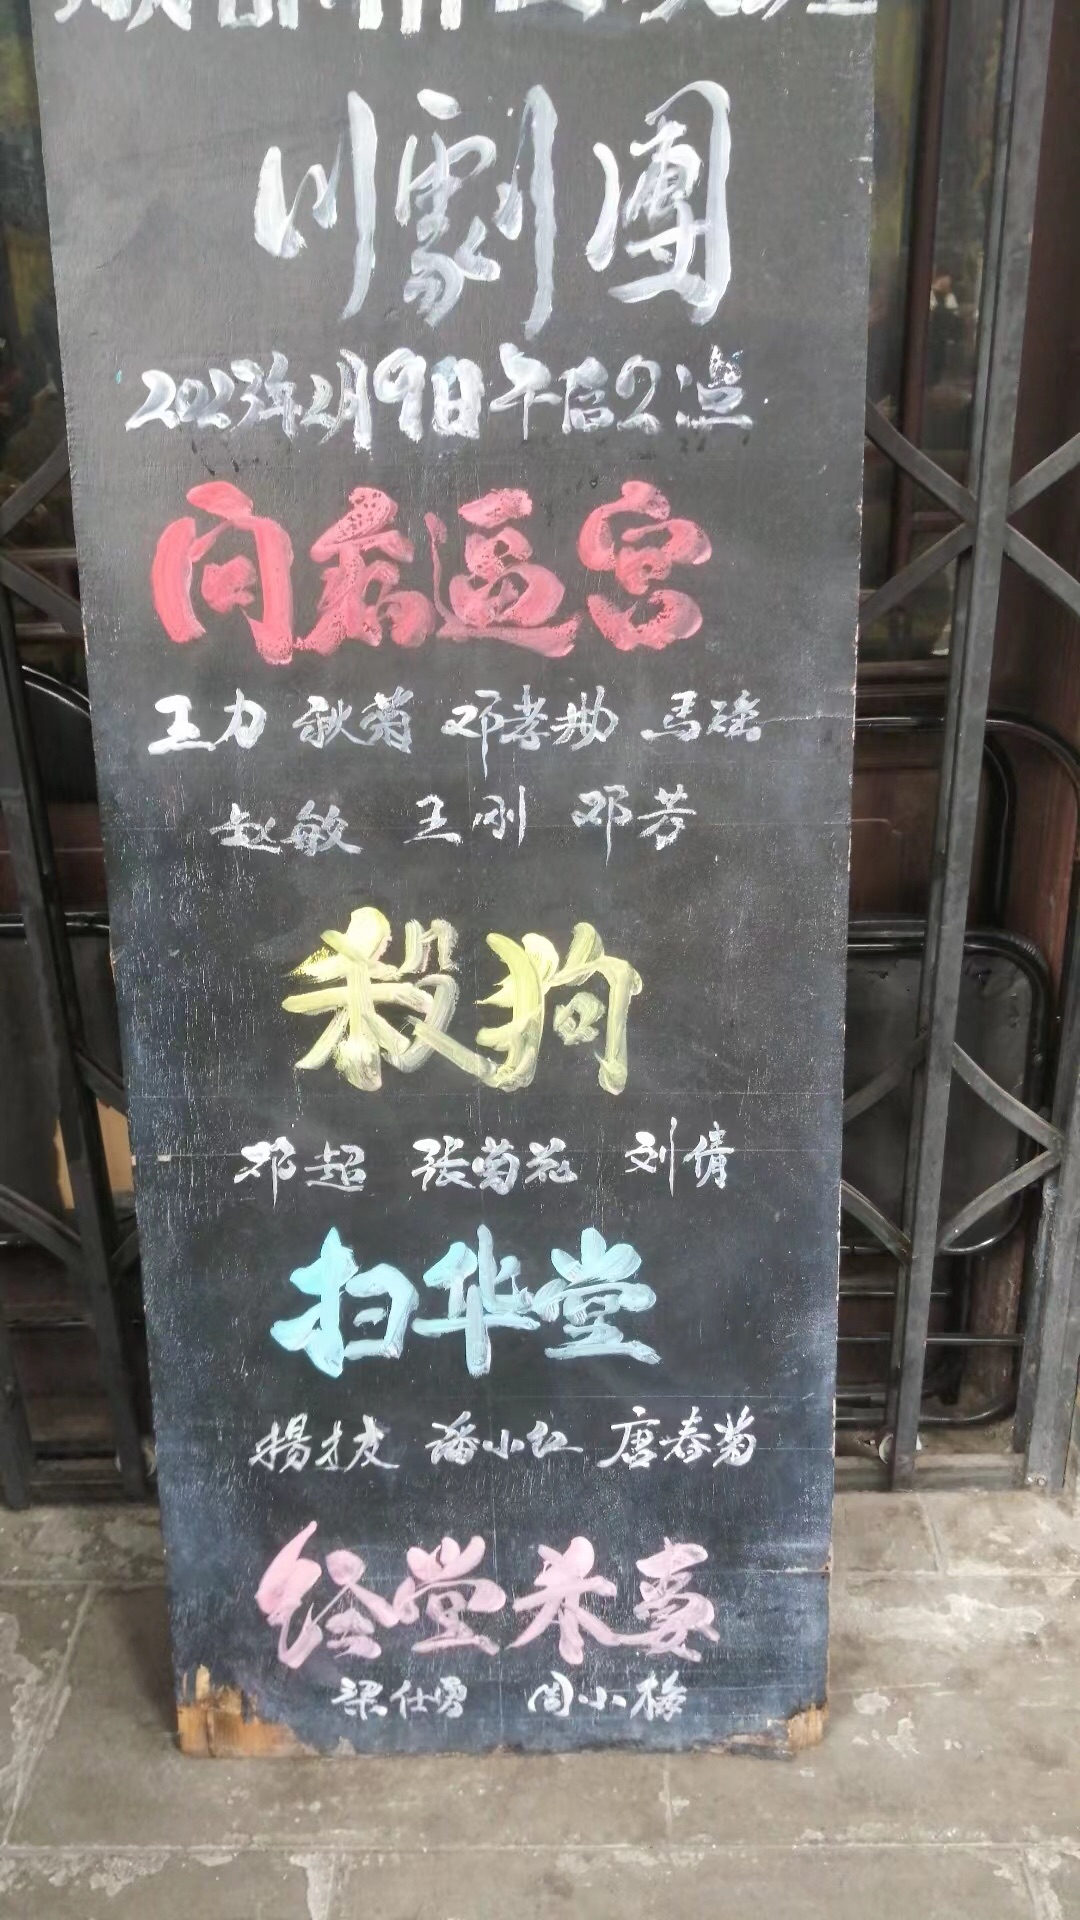 川劇團
2023年2月9日午后2点
问病逼宫
王力 秋菊 邓孝勋 马瑶
赵敏 王刚 邓芳
殺狗
邓超 张菊花 刘倩
扫华堂
揚才友 潘小红 唐春菊
经堂杀妻
梁仕勇 周小梅